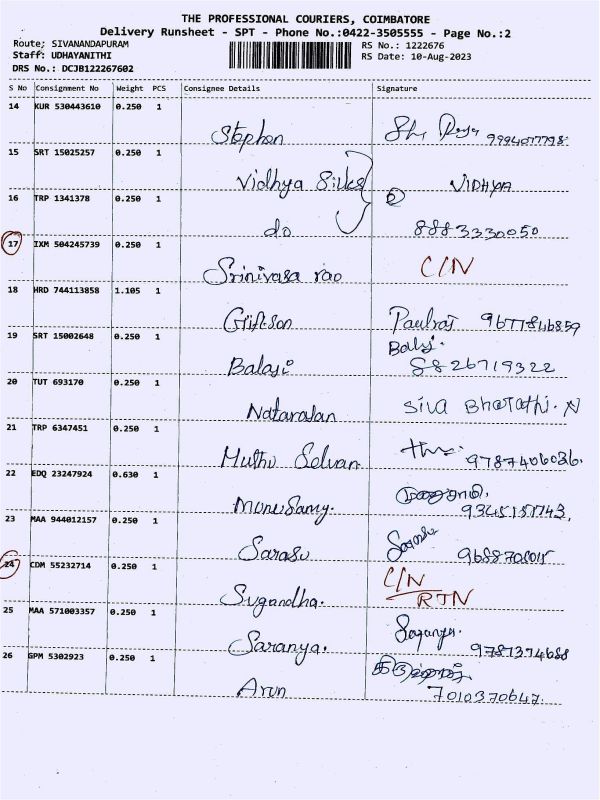 THE PROFESSIONAL COURIERS, COIMBATORE
Delivery Runsheet - SPT - Phone No.:0422-3505555 - Page No.:2
Route; SIVANANDAPURAM RS No.: 1222676
Staff: UDHAYANITHI RS Date: 10-Aug-2023
DRS No.: DCJB122267602
S No Consignment No Weight PCS Consignee Details Signature
14 KUR 530443610 0.250 1
Stephen
15 SRT 15025257 0.250 1
Vidhya Silks VIDHYA
16 TRP 1341378 0.250 1
do 8883330050
17 IXM 504245739 0.250 1
Srinivasa rao C/N
18 HRD 744113858 1.105 1
Giftson Paulraj 9677846859
19 SRT 15002648 0.250 1 Balaji.
Balaji 8826719322
20 TUT 693170 0.250 1
Natarajan Siva Bharathi. N
21 TRP 6347451 0.250 1
Muthu Selvan 9787406036.
22 EDQ 23247924 0.630 1
Munusamy.
23 MAA 944012157 0.250 1
Sarasu Sarasu
24 CDM 55232714 0.250 1 C/N
Sugandha. RTN
25 MAA 571003357 0.250 1
Saranya. Saranya. 9787374688
26 GPM 5302923 0.250 1
Arun 7010370647.